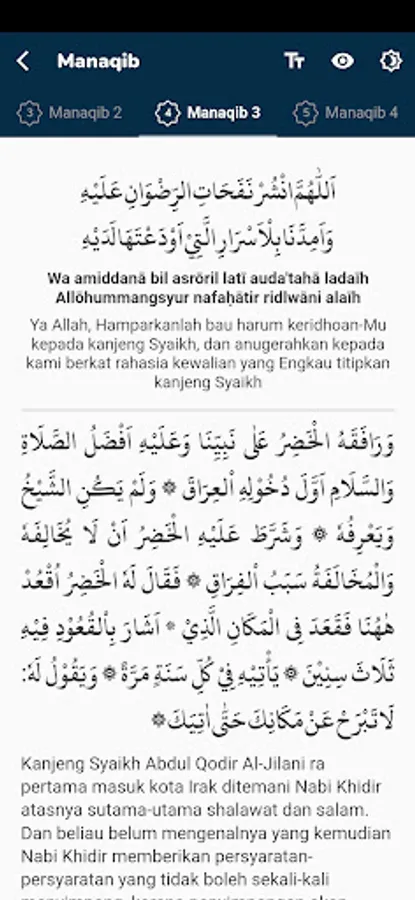 Manaqib
Tт
3 Manaqib 2
4 Manaqib 3
5 Manaqib 4
اَللّٰهُمَّ انْشُرْ نَفَحَاتِ الرِّضْوَانِ عَلَيْهِ
وَاَمِدَّنَا بِالْاَسْرَارِ الَّتِيْ اَوْدَعْتَهَا لَدَيْهِ
Wa amiddanā bil asrōril latī auda'tahā ladaīh
Allōhummangsyur nafaḥātir ridlwāni alaīh
Ya Allah, Hamparkanlah bau harum keridhoan-Mu
kepada kanjeng Syaikh, dan anugerahkan kepada
kami berkat rahasia kewalian yang Engkau titipkan
kanjeng Syaikh
وَرَافَقَهُ الْخَضِرُ عَلٰى نَبِيِّنَا وَعَلَيْهِ اَفْضَلُ الصَّلَاةِ
وَالسَّلَامِ اَوَّلَ دُخُوْلِهِ الْعِرَاقَ ۞ وَلَمْ يَكُنِ الشَّيْخُ
وَيَعْرِفُهُ ۞ وَشَرَّطَ عَلَيْهِ الْخَضِرُ اَنْ لَا يُخَالِفَهُ
وَالْمُخَالَفَةُ سَبَبُ الْفِرَاقِ ۞ فَقَالَ لَهُ الْخَضِرُ اُقْعُدْ
هٰهُنَا فَقَعَدَ فِى الْمَكَانِ الَّذِيْ ۞ اَشَارَ بِالْقُعُوْدِ فِيْهِ
ثَلَاثَ سِنِيْنَ ۞ يَأْتِيْهِ فِيْ كُلِّ سَنَةٍ مَرَّةً ۞ وَيَقُوْلُ لَهُ:
لَا تَبْرَحْ عَنْ مَكَانِكَ حَتّٰى اٰتِيَكَ ۞
Kanjeng Syaikh Abdul Qodir Al-Jilani ra
pertama masuk kota Irak ditemani Nabi Khidir
atasnya sutama-utama shalawat dan salam.
Dan beliau belum mengenalnya yang kemudian
Nabi Khidir memberikan persyaratan-
persyaratan yang tidak boleh sekali-kali